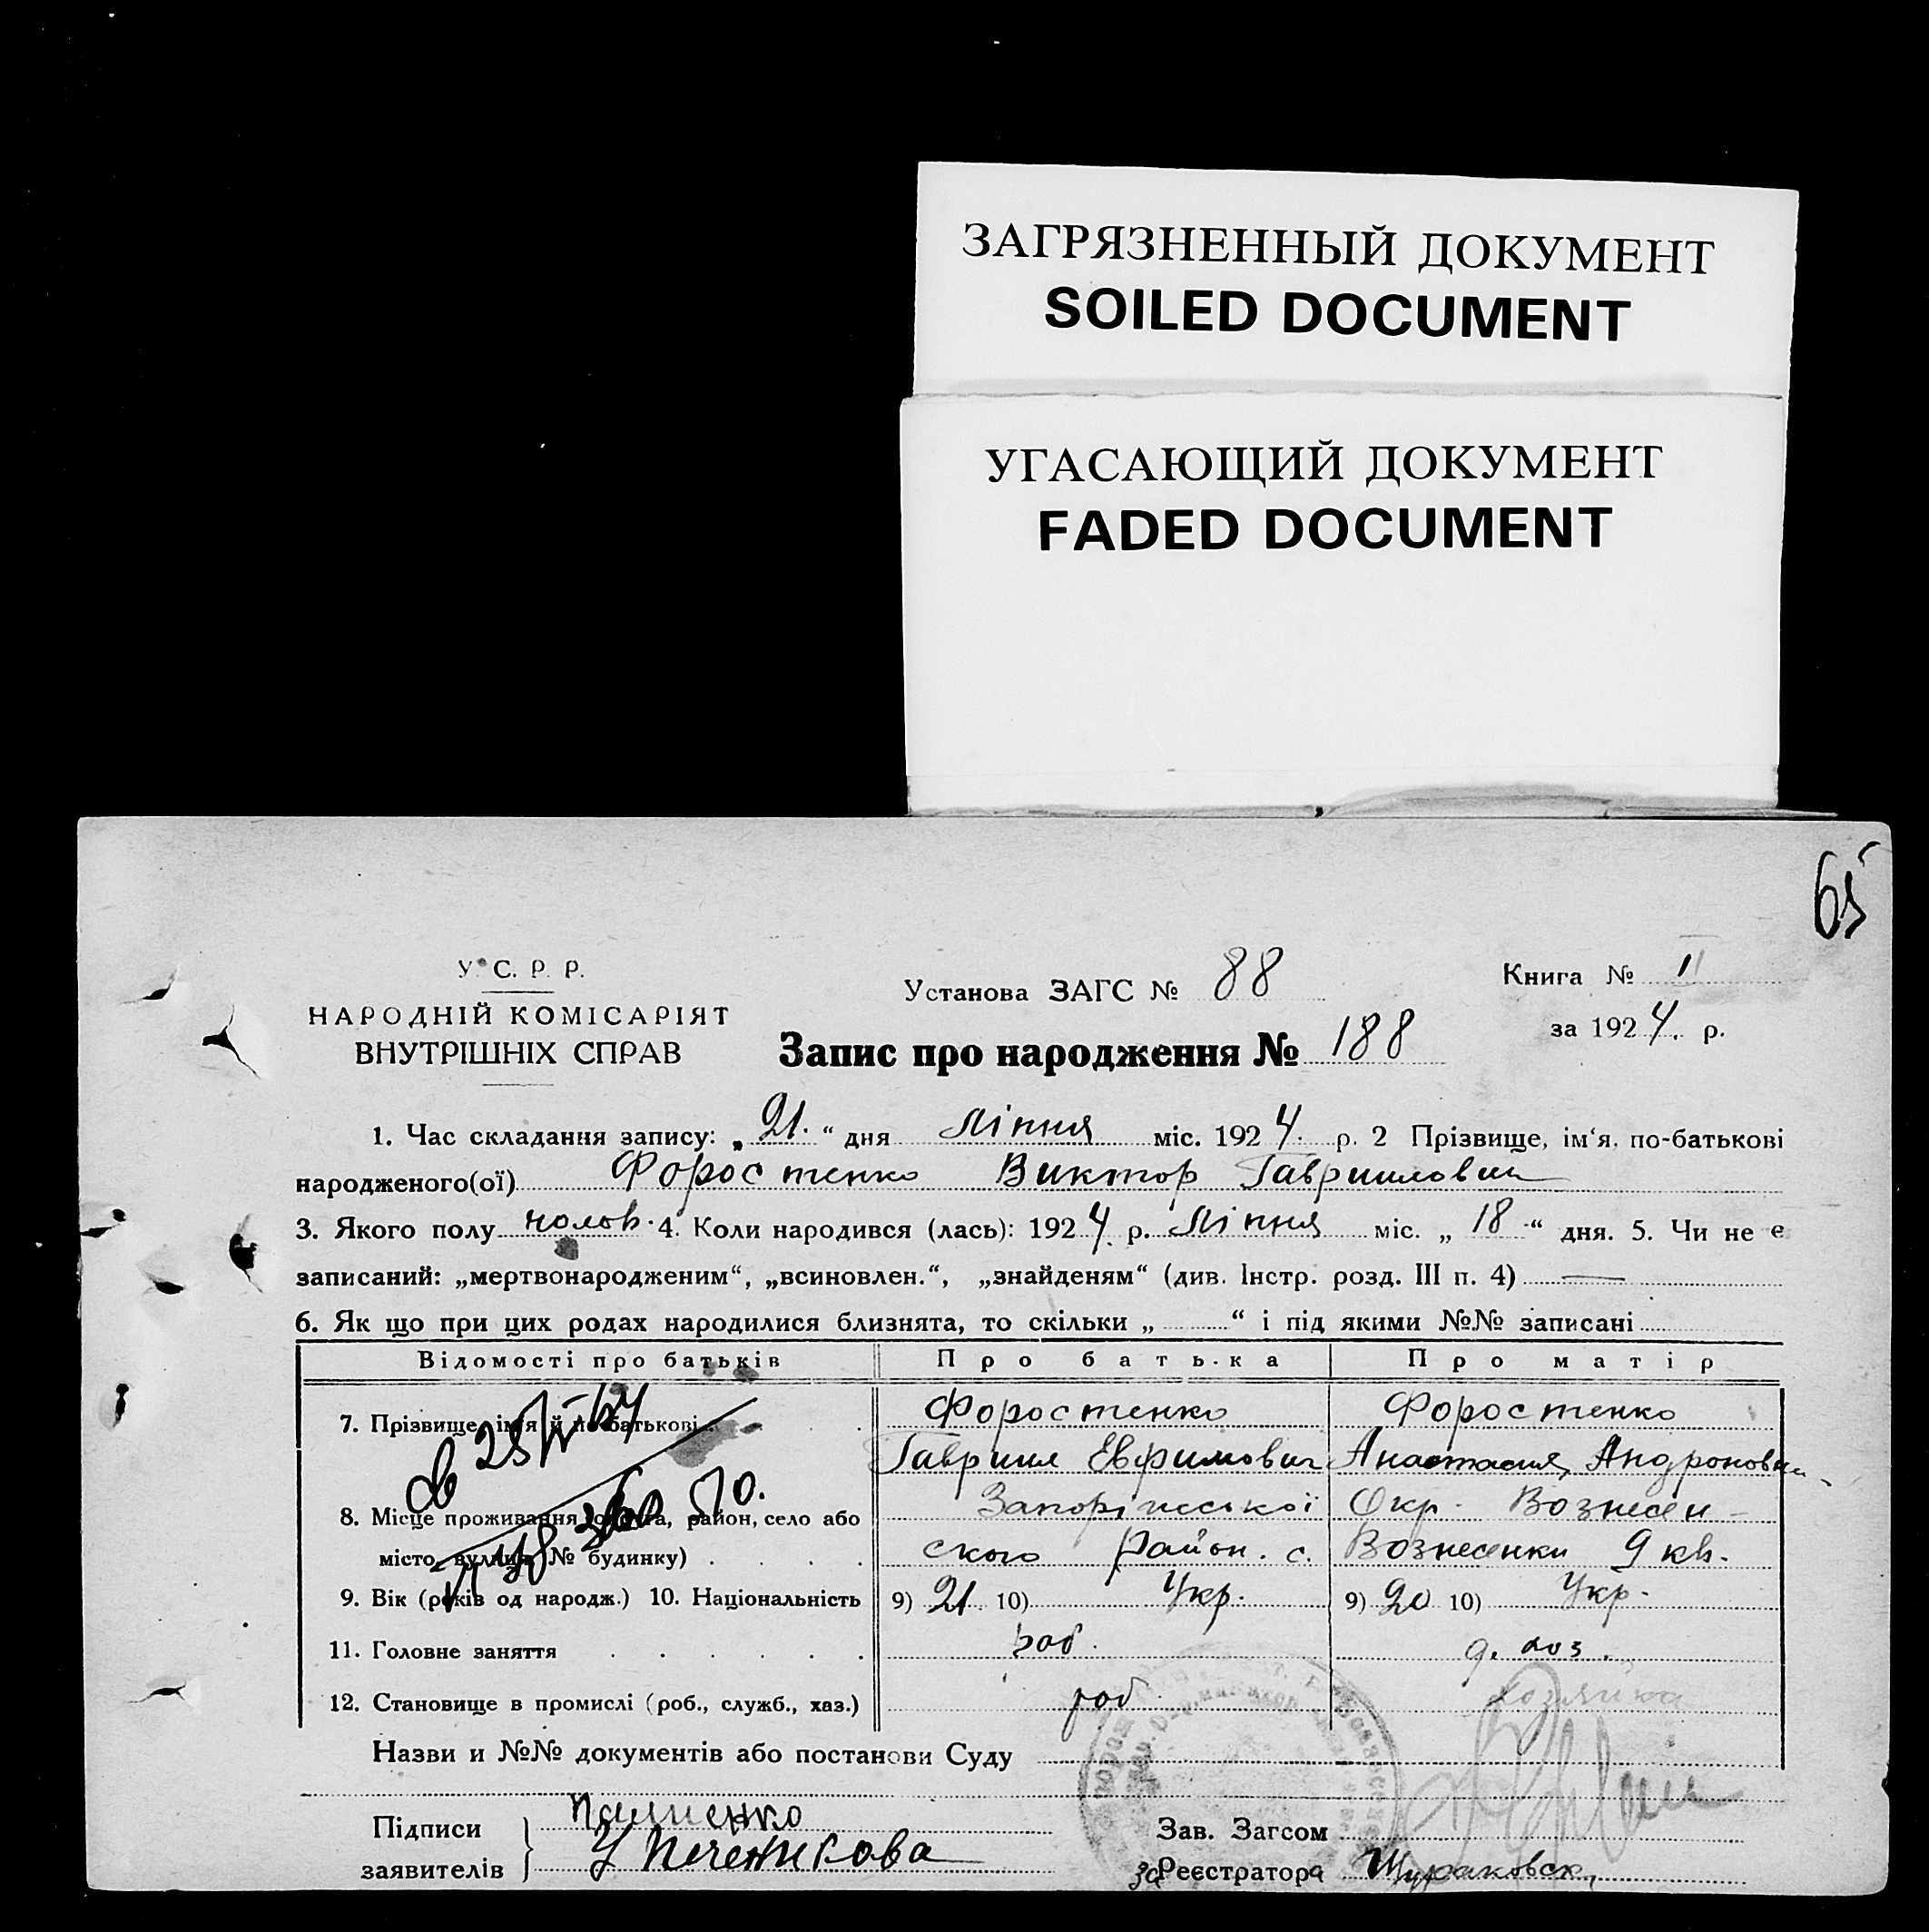 ЗАГРЯЗНЕННЫЙ ДОКУМЕНТ
SOILED DOCUMENT
УГАСАЮЩИЙ ДОКУМЕНТ
FADED DOCUMENT
65
У. С. Р. Р.
НАРОДНІЙ КОМІСАРІЯТ
ВНУТРІШНІХ СПРАВ
Установа ЗАГС № 88
Запис про народження № 188
Книга № II
за 1924 р.
1. Час складання запису: „21.“ дня Ліпня міс. 1924. р. 2 Прізвище, ім‘я, по-батькові
народженого(ої) Форостенко Виктор Гаврилович
3. Якого полу чолов. 4. Коли народився (лась): 1924 р. Ліпня міс. „18“ дня. 5. Чи не є
записаний: „мертвонародженим“, „всиновлен.“, „знайденям“ (див. Інстр. розд. III п. 4) —
6. Як що при цих родах народилися близнята, то скільки „ “ і під якими №№ записані
Відомості про батьків Про батька Про матір
7. Прізвище, ім‘я й по-батькові Форостенко Форостенко
Гавриил Евфимович Анастасия Андроновна
8. Місце проживання (округа, район, село або Запоріжської Окр. Вознесен-
місто, вулиця, № будинку) ского Район. с. Вознесенки 9 кв.
9. Вік (років од народж.) 10. Національність 9) 21 10) Укр. 9) 20 10) Укр.
11. Головне заняття роб. д. хоз.
12. Становище в промислі (роб., служб., хаз.) роб хозяйка
Назви и №№ документів або постанови Суду
Підписи
заявителів Печенкова
Зав. Загсом
за Реєстратора